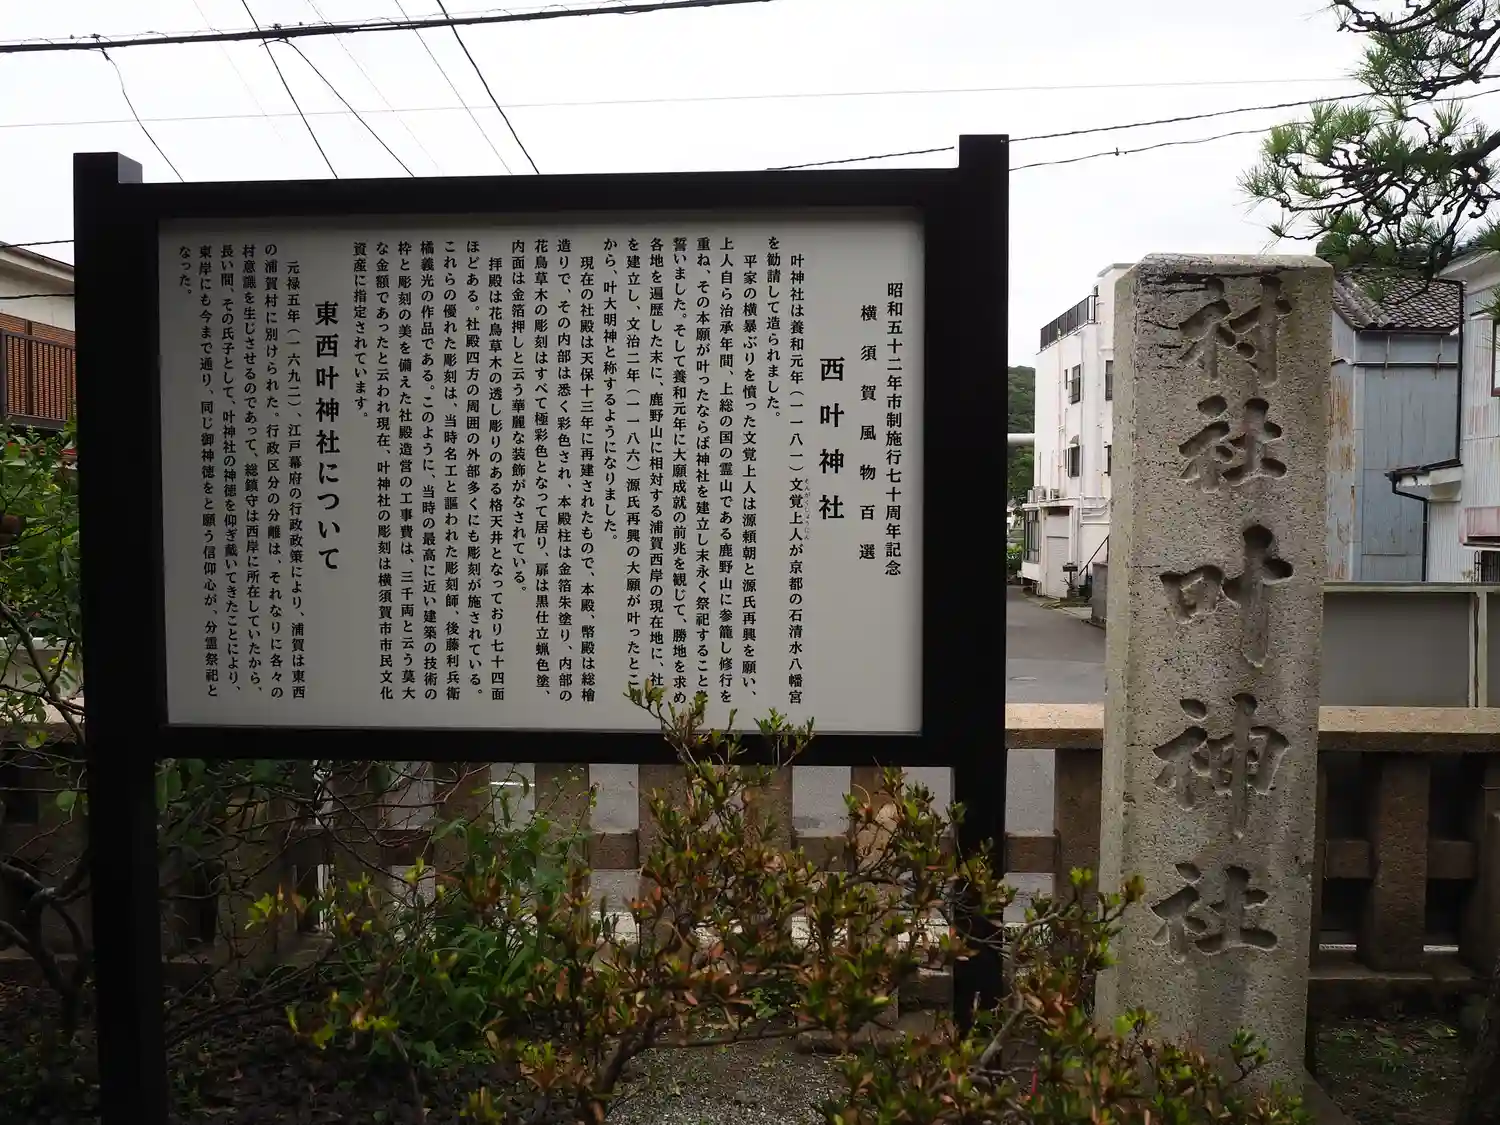 昭和五十二年市制施行七十周年記念
横須賀風物百選
西叶神社
叶神社は養和元年(一一八一)文覚上人が京都の石清水八幡宮
もんがくしょうにん
を勧請して造られました。
平家の横暴ぶりを憤った文覚上人は源頼朝と源氏再興を願い、
上人自ら治承年間、上総の国の霊山である鹿野山に参籠し修行を
重ね、その本願が叶ったならば神社を建立し末永く祭祀すること
誓いました。そして養和元年に大願成就の前兆を観じて、勝地を求め
各地を遍歴した末に、鹿野山に相対する浦賀西岸の現在地に、社
を建立し、文治二年(一一八六)源氏再興の大願が叶ったとこ
から、叶大明神と称するようになりました。
現在の社殿は天保十三年に再建されたもので、本殿、幣殿は総檜
造りで、その内部は悉く彩色され、本殿柱は金箔朱塗り、内部の
花鳥草木の彫刻はすべて極彩色となって居り、扉は黒仕立蝋色塗、
内面は金箔押しと云う華麗な装飾がなされている。
拝殿は花鳥草木の透し彫りのある格天井となっており七十四面
ほどある。社殿四方の周囲の外部多くにも彫刻が施されている。
これらの優れた彫刻は、当時名工と謳われた彫刻師、後藤利兵衛
橘義光の作品である。このように、当時の最高に近い建築の技術の
枠と彫刻の美を備えた社殿造営の工事費は、三千両と云う莫大
な金額であったと云われ現在、叶神社の彫刻は横須賀市市民文化
資産に指定されています。
東西叶神社について
元禄五年(一六九二)、江戸幕府の行政政策により、浦賀は東西
の浦賀村に別けられた。行政区分の分離は、それなりに各々の
村意識を生じさせるのであって、総鎮守は西岸に所在していたから、
長い間、その氏子として、叶神社の神徳を仰ぎ戴いてきたことにより、
東岸にも今まで通り、同じ御神徳をと願う信仰心が、分霊祭祀と
なった。
村社叶神社